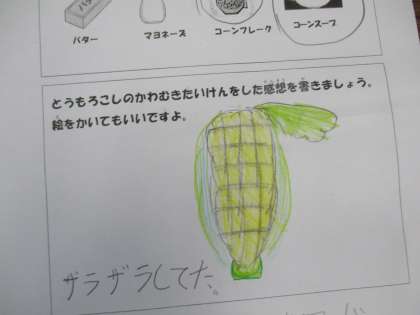 バター
マヨネーズ
コーンフレーク
コーンスープ
とうもろこしのかわむきたいけんをした感想を書きましょう。
絵をかいてもいいですよ。
ザラザラしてた。